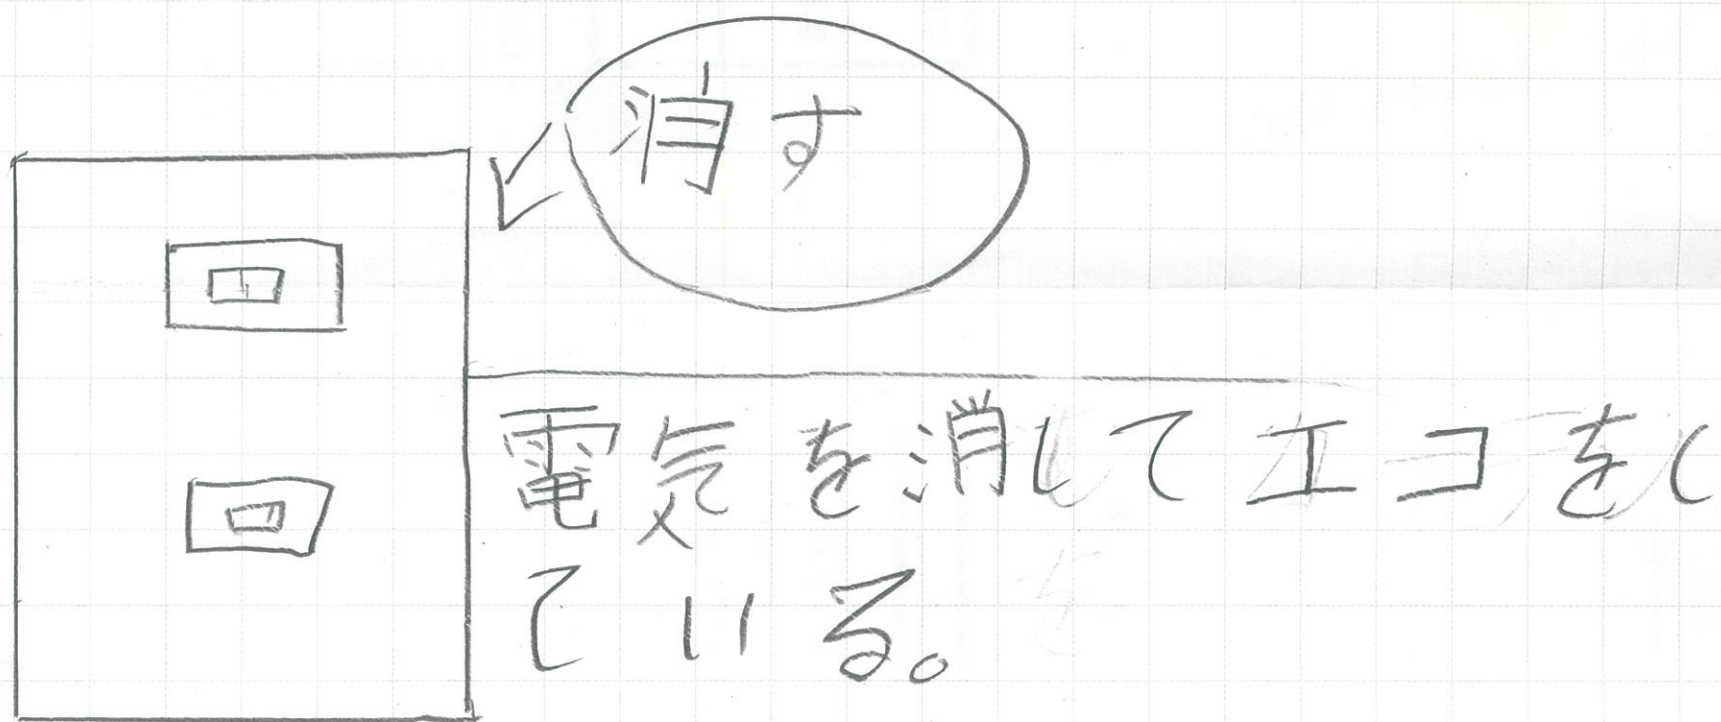 消す
電気を消してエコをし
ている。